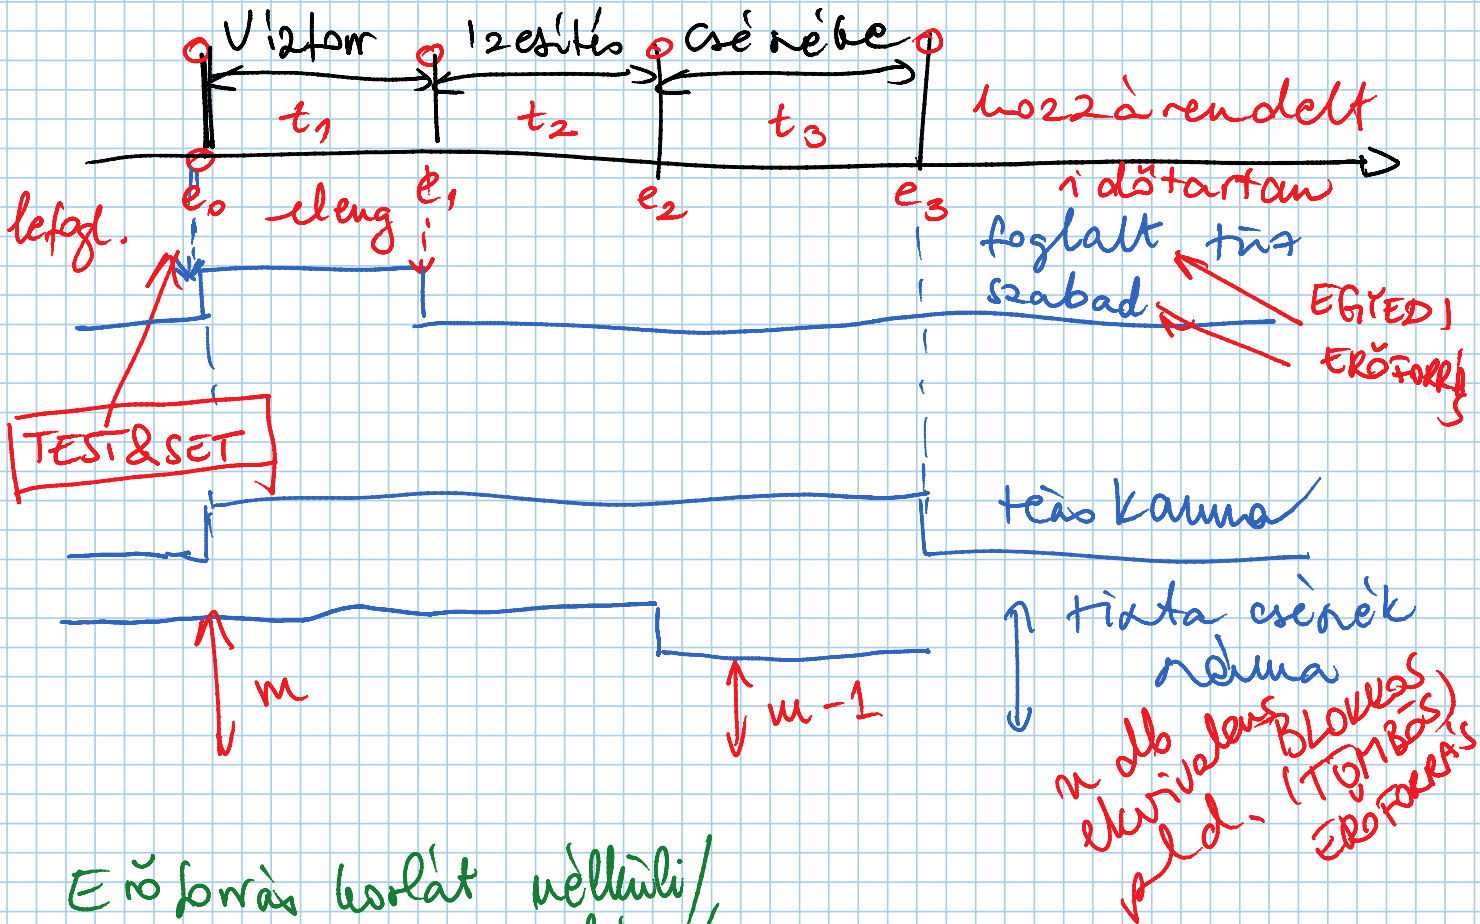 Vízforr ízesítés csészébe
t1 t2 t3 hozzárendelt
időtartam
e0 e1 e2 e3
lefogl. eleng
foglalt tűz
szabad
EGYEDI
ERŐFORRÁS
TEST&SET
teás kanna
tiszta csészék
száma
m
m-1
n db
ekvivalens
péld.
BLOKKOS
(TÖMBÖS)
ERŐFORRÁS
Erőforrás korlát nélküli/